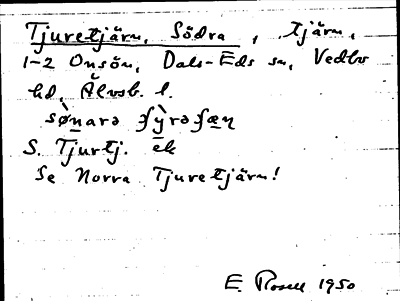 Tjuretjärn, Södra, tjärn,
1-2 Onsön, Dals-Eds sn, Vedbo
hd, Älvsb. l.
sø̀narə ʄỳrəʄæṇ
S. Tjurtj. ek
Se Norra Tjuretjärn!
E. Rosell 1950